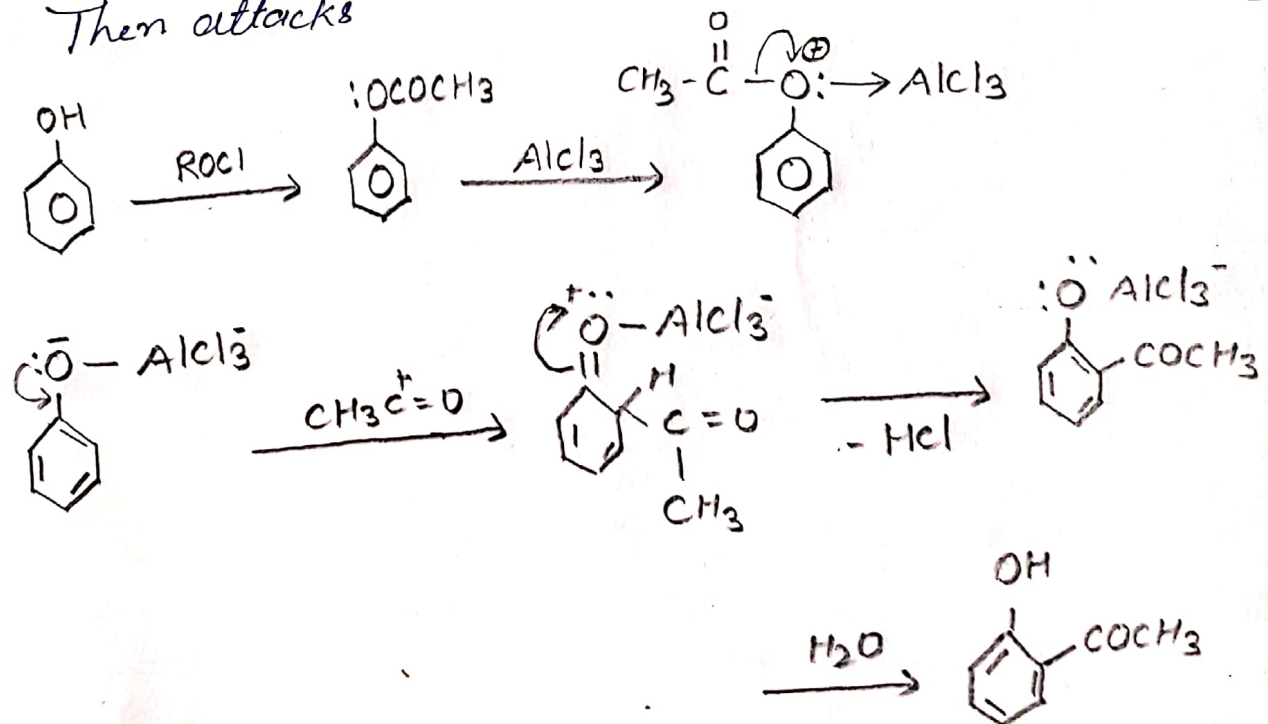 Then attacks
OH
ROCl
:OCOCH3
AlCl3
O
CH3-C-O:→AlCl3
⊕
:Ō-AlCl3⁻
CH3C⁺=O
+..
O-AlCl3⁻
H
C=O
CH3
-HCl
:Ö AlCl3⁻
COCH3
H2O
OH
COCH3